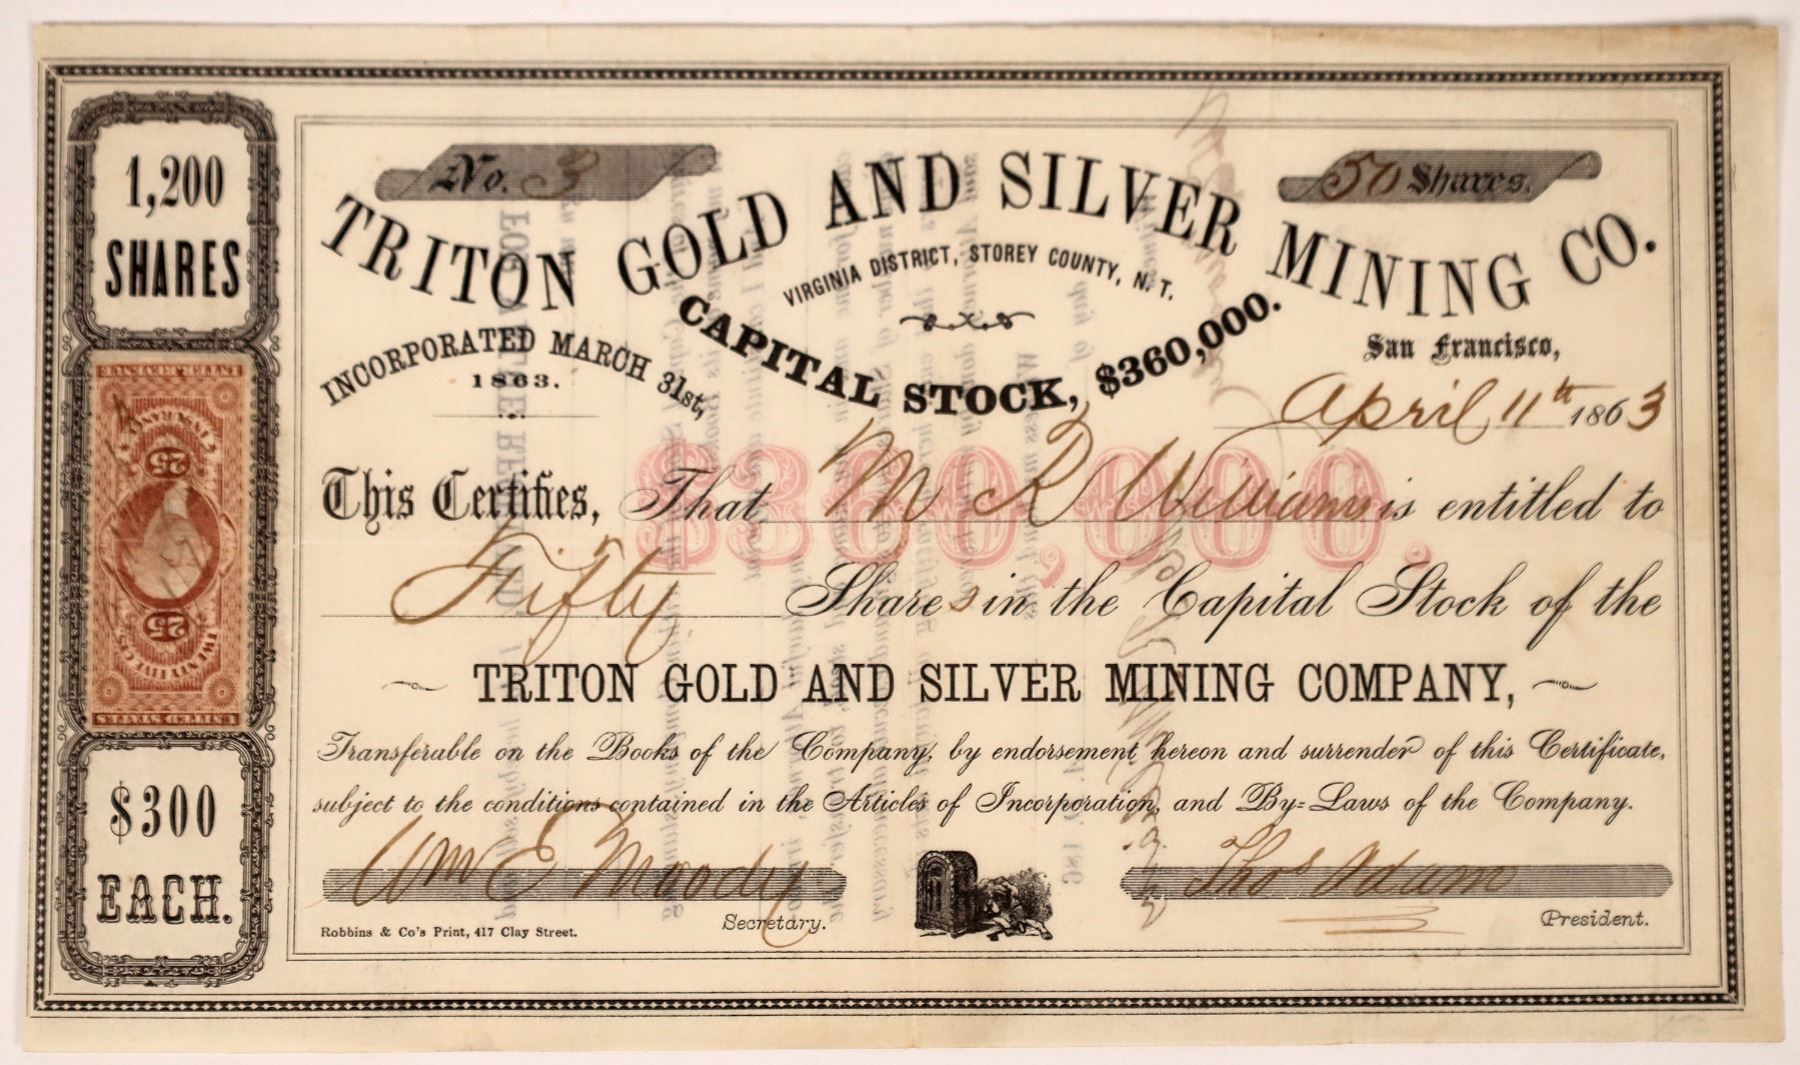 1,200
SHARES
$300
EACH.
UNITED STATES
INTER. REVENUE
INSURANCE
25
25
TWENTY FIVE CTS.
No. 3
50 Shares.
TRITON GOLD AND SILVER MINING CO.
VIRGINIA DISTRICT, STOREY COUNTY, N. T.
CAPITAL STOCK, $360,000.
INCORPORATED MARCH 31st,
1863.
San Francisco,
April 11th 1863
$360,000.
This Certifies, That M R Williams is entitled to
Fifty Shares in the Capital Stock of the
TRITON GOLD AND SILVER MINING COMPANY,
Transferable on the Books of the Company, by endorsement hereon and surrender of this Certificate,
subject to the conditions contained in the Articles of Incorporation, and By-Laws of the Company.
Wm E Moody
Secretary.
Thos Adam
President.
Robbins & Co's Print, 417 Clay Street.